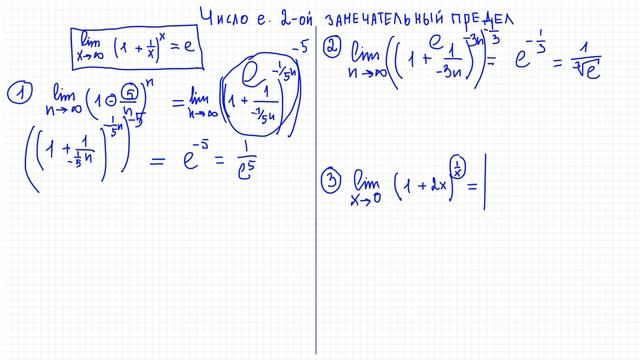 Число e. 2-ой замечательный предел
lim x→∞ (1 + 1/x)^x = e
① lim n→∞ (1 - 5/n)^n = lim n→∞ ((1 + 1/(-1/5n))^(-1/5n))^-5
e
((1 + 1/(-1/5 n))^(-1/5n))^-5 = e^-5 = 1/e^5
② lim n→∞ ((1 + 1/-3n)^-3n)^(-1/3) = e^(-1/3) = 1/∛e
e
③ lim x→0 (1 + 2x)^(1/x) = |